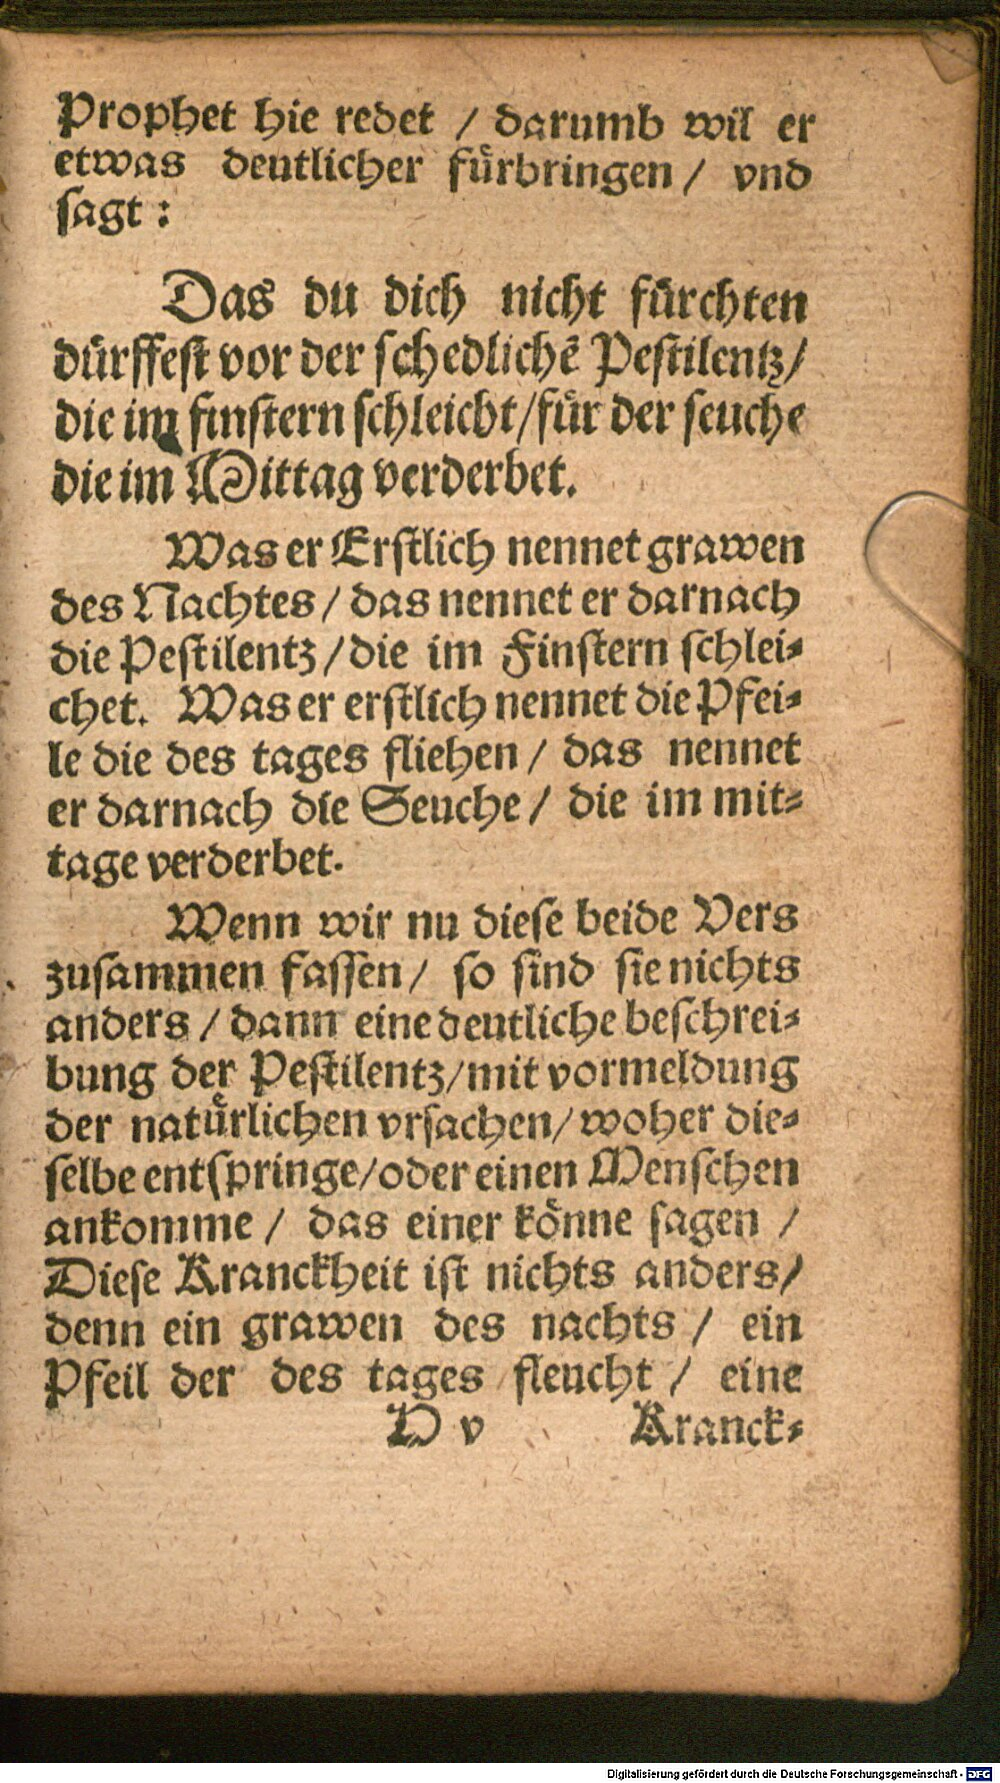 Prophet hie redet / darumb wil er
etwas deutlicher fürbringen / vnd
sagt :
Das du dich nicht fürchten
dürffest vor der schedlichē Pestilentz /
die im finstern schleicht / für der seuche
die im Mittag verderbet.
Was er Erstlich nennet grawen
des Nachtes / das nennet er darnach
die Pestilentz / die im Finstern schlei-
chet. Was er erstlich nennet die Pfei-
le die des tages fliehen / das nennet
er darnach die Seuche / die im mit-
tage verderbet.
Wenn wir nu diese beide Vers
zusammen fassen / so sind sie nichts
anders / dann eine deutliche beschrei-
bung der Pestilentz / mit vormeldung
der natürlichen vrsachen / woher die-
selbe entspringe / oder einen Menschen
ankomme / das einer könne sagen /
Diese Kranckheit ist nichts anders /
denn ein grawen des nachts / ein
Pfeil der des tages fleucht / eine
D v Kranck-
Digitalisierung gefördert durch die Deutsche Forschungsgemeinschaft - DFG